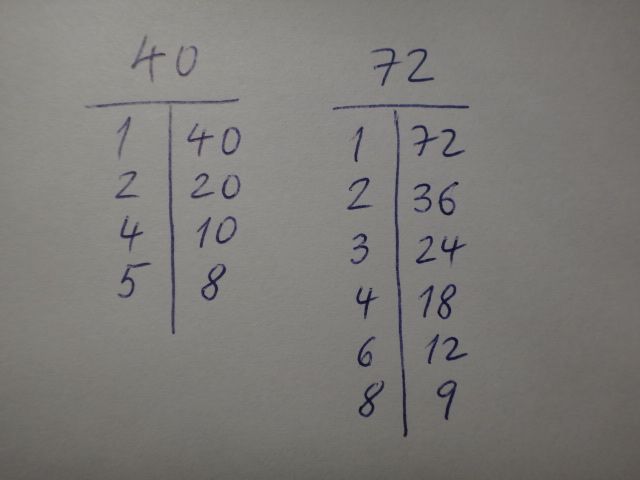 40
1 40
2 20
4 10
5 8
72
1 72
2 36
3 24
4 18
6 12
8 9